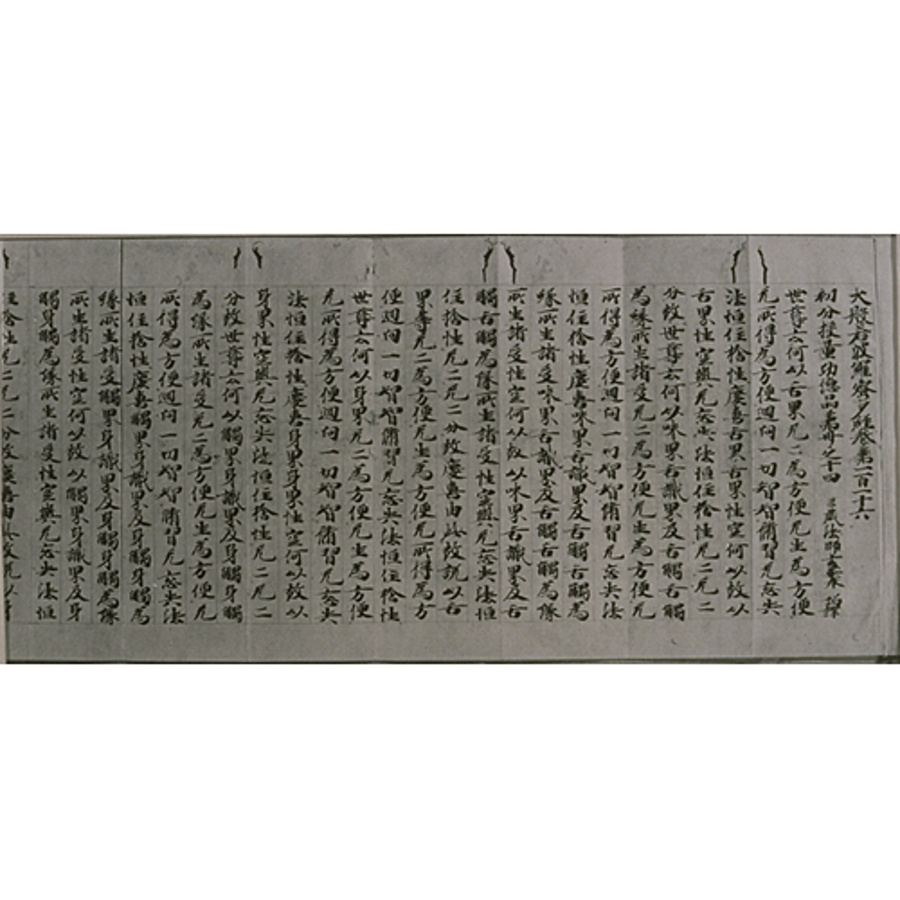 大般若波羅蜜多經卷第一百一十六
初分挍量功德品第卅之十四 三藏法師玄奘奉 詔譯
世尊云何以舌界无二為方便无生為方便
无所得為方便迴向一切智智修習无忘失
法恒住捨性慶喜舌界舌界性空何以故以
舌界性空與无忘失法恒住捨性无二无二
分故世尊云何以味界舌識界及舌觸舌觸
為緣所生諸受无二為方便无生為方便无
所得為方便迴向一切智智修習无忘失法
恒住捨性慶喜味界舌識界及舌觸舌觸為
緣所生諸受味界舌識界及舌觸舌觸為緣
所生諸受性空何以故以味界舌識界及舌
觸舌觸為緣所生諸受性空與无忘失法恒
住捨性无二无二分故慶喜由此故說以舌
界等无二為方便无生為方便无所得為方
便迴向一切智智修習无忘失法恒住捨性
世尊云何以身界无二為方便无生為方便
无所得為方便迴向一切智智修習无忘失
法恒住捨性慶喜身界身界性空何以故以
身界性空與无忘失法恒住捨性无二无二
分故世尊云何以觸界身識界及身觸身觸
為緣所生諸受无二為方便无生為方便无
所得為方便迴向一切智智修習无忘失法
恒住捨性慶喜觸界身識界及身觸身觸為
緣所生諸受觸界身識界及身觸身觸為緣
所生諸受性空何以故以觸界身識界及身
觸身觸為緣所生諸受性空與无忘失法恒